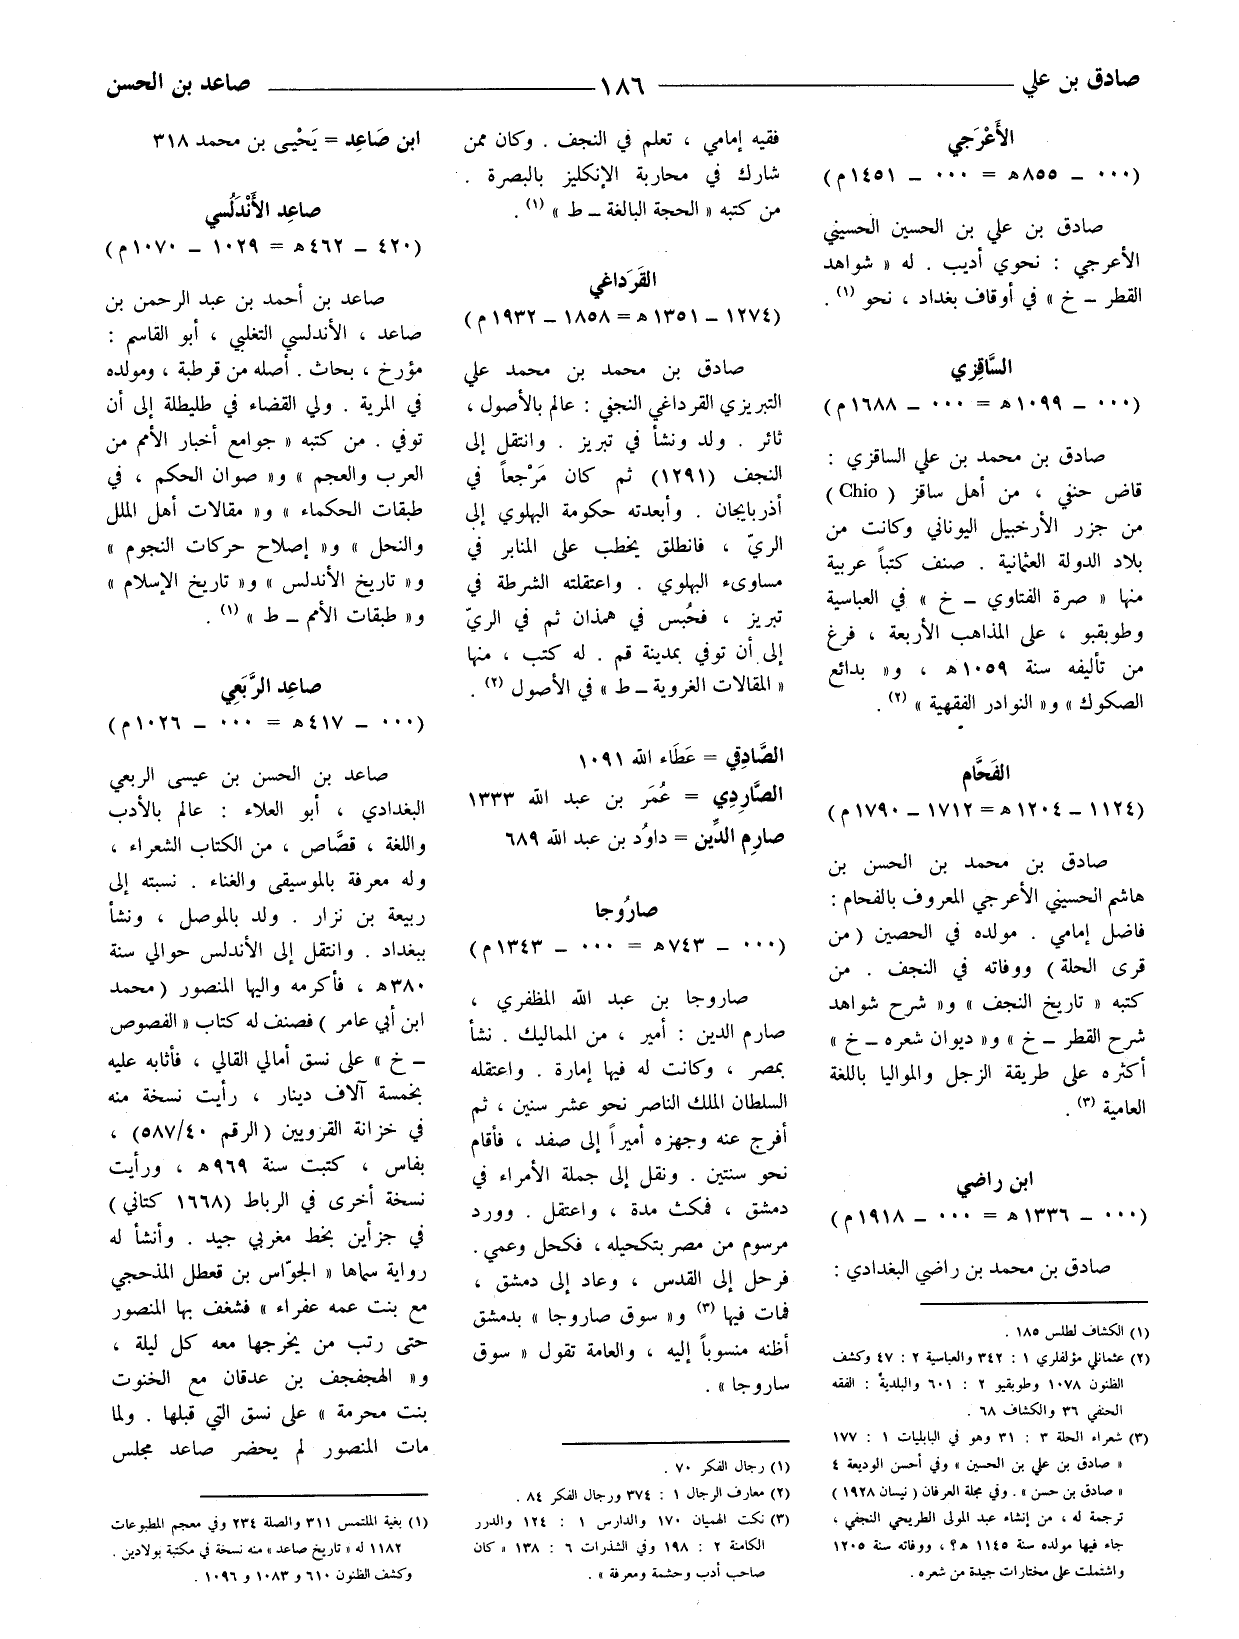 صادق بن علي
١٨٦
صاعد بن الحسن
الأَعْرَجي
(٠٠٠ ــ ٨٥٥ هـ = ٠٠٠ ــ ١٤٥١ م)
صادق بن علي بن الحسين الحسيني
الأعرجي : نحوي أديب . له « شواهد
القطر ــ خ » في أوقاف بغداد ، نحو (١) .
السَّاقِزي
(٠٠٠ ــ ١٠٩٩ هـ = ٠٠٠ ــ ١٦٨٨ م)
صادق بن محمد بن علي الساقزي :
قاض حنفي ، من أهل ساقز ( Chio )
من جزر الأرخبيل اليوناني وكانت من
بلاد الدولة العثمانية . صنف كتباً عربية
منها « صرة الفتاوي ــ خ » في العباسية
وطوبقبو ، على المذاهب الأربعة ، فرغ
من تأليفه سنة ١٠٥٩ هـ ، و« بدائع
الصكوك » و« النوادر الفقهية » (٢) .
الفَحَّام
(١١٢٤ ــ ١٢٠٤ هـ = ١٧١٢ ــ ١٧٩٠ م)
صادق بن محمد بن الحسن بن
هاشم الحسيني الأعرجي المعروف بالفحام :
فاضل إمامي . مولده في الحصين ( من
قرى الحلة ) ووفاته في النجف . من
كتبه « تاريخ النجف » و« شرح شواهد
شرح القطر ــ خ » و« ديوان شعره ــ خ »
أكثره على طريقة الزجل والمواليا باللغة
العامية (٣) .
ابن راضي
(٠٠٠ ــ ١٣٣٦ هـ = ٠٠٠ ــ ١٩١٨ م)
صادق بن محمد بن راضي البغدادي :
(١) الكشاف لطلس ١٨٥ .
(٢) عثمانلي مؤلفلري ١ : ٣٤٢ والعباسية ٢ : ٤٧ وكشف
الظنون ١٠٧٨ وطوبقبو ٢ : ٦٠١ والبلدية : الفقه
الحنفي ٣٦ والكشاف ٦٨ .
(٣) شعراء الحلة ٣ : ٣١ وهو في البابليات ١ : ١٧٧
« صادق بن علي بن الحسين » وفي أحسن الوديعة ٤
« صادق بن حسن » . وفي مجلة العرفان ( نيسان ١٩٢٨ )
ترجمة له ، من إنشاء عبد المولى الطريحي النجفي ،
جاء فيها مولده سنة ١١٤٥ هـ ؟ ، ووفاته سنة ١٢٠٥
واشتملت على مختارات جيدة من شعره .
فقيه إمامي ، تعلم في النجف . وكان ممن
شارك في محاربة الإنكليز بالبصرة .
من كتبه « الحجة البالغة ــ ط » (١) .
القَرَداغي
(١٢٧٤ ــ ١٣٥١ هـ = ١٨٥٨ ــ ١٩٣٢ م)
صادق بن محمد بن محمد علي
التبريزي القرداغي النجفي : عالم بالأصول ،
ثائر . ولد ونشأ في تبريز . وانتقل إلى
النجف (١٢٩١) ثم كان مَرْجعاً في
أذربايجان . وأبعدته حكومة البهلوي إلى
الريّ ، فانطلق يخطب على المنابر في
مساوىء البهلوي . واعتقلته الشرطة في
تبريز ، فحُبس في همذان ثم في الريّ
إلى أن توفي بمدينة قم . له كتب ، منها
« المقالات الغروية ــ ط » في الأصول (٢) .
الصَّادِقي = عَطَاء الله ١٠٩١
الصَّارِدِي = عُمَر بن عبد الله ١٣٣٣
صارِم الدِّين = داوُد بن عبد الله ٦٨٩
صارُوجا
(٠٠٠ ــ ٧٤٣ هـ = ٠٠٠ ــ ١٣٤٣ م)
صاروجا بن عبد الله المظفري ،
صارم الدين : أمير ، من المماليك . نشأ
بمصر ، وكانت له فيها إمارة . واعتقله
السلطان الملك الناصر نحو عشر سنين ، ثم
أفرج عنه وجهزه أميراً إلى صفد ، فأقام
نحو سنتين . ونقل إلى جملة الأمراء في
دمشق ، فمكث مدة ، واعتقل . وورد
مرسوم من مصر بتكحيله ، فكحل وعمي .
فرحل إلى القدس ، وعاد إلى دمشق ،
فمات فيها (٣) و« سوق صاروجا » بدمشق
أظنه منسوباً إليه ، والعامة تقول « سوق
ساروجا » .
(١) رجال الفكر ٧٠ .
(٢) معارف الرجال ١ : ٣٧٤ ورجال الفكر ٨٤ .
(٣) نكت الهميان ١٧٠ والدارس ١ : ١٢٤ والدرر
الكامنة ٢ : ١٩٨ وفي الشذرات ٦ : ١٣٨ « كان
صاحب أدب وحشمة ومعرفة » .
ابن صَاعِد = يَحْيى بن محمد ٣١٨
صاعِد الأَنْدَلُسي
(٤٢٠ ــ ٤٦٢ هـ = ١٠٢٩ ــ ١٠٧٠ م)
صاعد بن أحمد بن عبد الرحمن بن
صاعد ، الأندلسي التغلبي ، أبو القاسم :
مؤرخ ، بحاث . أصله من قرطبة ، ومولده
في المرية . ولي القضاء في طليطلة إلى أن
توفي . من كتبه « جوامع أخبار الأمم من
العرب والعجم » و« صوان الحكم ، في
طبقات الحكماء » و« مقالات أهل الملل
والنحل » و« إصلاح حركات النجوم »
و« تاريخ الأندلس » و« تاريخ الإسلام »
و« طبقات الأمم ــ ط » (١) .
صاعِد الرَّبَعِي
(٠٠٠ ــ ٤١٧ هـ = ٠٠٠ ــ ١٠٢٦ م)
صاعد بن الحسن بن عيسى الربعي
البغدادي ، أبو العلاء : عالم بالأدب
واللغة ، قصَّاص ، من الكتاب الشعراء ،
وله معرفة بالموسيقى والغناء . نسبته إلى
ربيعة بن نزار . ولد بالموصل ، ونشأ
ببغداد . وانتقل إلى الأندلس حوالي سنة
٣٨٠ هـ ، فأكرمه واليها المنصور ( محمد
ابن أبي عامر ) فصنف له كتاب « الفصوص
ــ خ » على نسق أمالي القالي ، فأثابه عليه
بخمسة آلاف دينار ، رأيت نسخة منه
في خزانة القرويين ( الرقم ٥٨٧/٤٠ ) ،
بفاس ، كتبت سنة ٩٦٩ هـ ، ورأيت
نسخة أخرى في الرباط ( ١٦٦٨ كتاني )
في جزأين بخط مغربي جيد . وأنشأ له
رواية سماها « الجوّاس بن قعطل المذحجي
مع بنت عمه عفراء » فشغف بها المنصور
حتى رتب من يخرجها معه كل ليلة ،
و« الهجفجف بن عدقان مع الخنوت
بنت محرمة » على نسق التي قبلها . ولما
مات المنصور لم يحضر صاعد مجلس
(١) بغية الملتمس ٣١١ والصلة ٢٣٤ وفي معجم المطبوعات
١١٨٢ له « تاريخ صاعد » منه نسخة في مكتبة بولادين .
وكشف الظنون ٦١٠ و ١٠٨٣ و ١٠٩٦ .